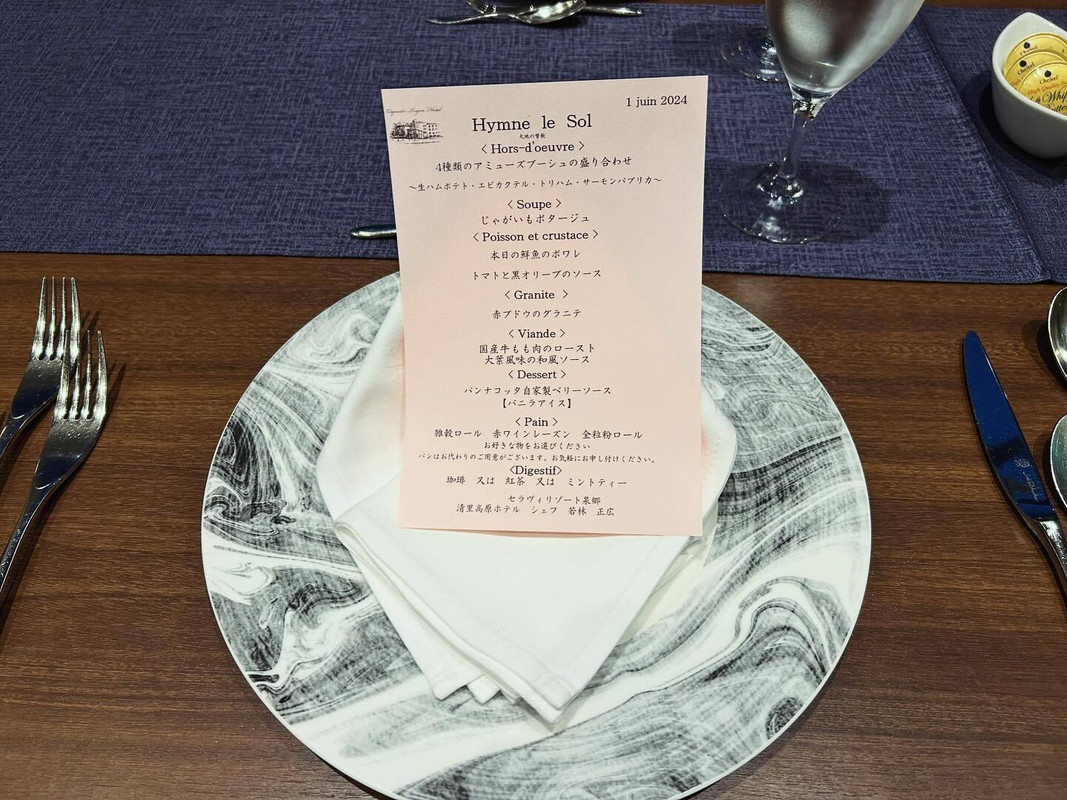 1 juin 2024
Hymne le Sol
大地の賛歌
< Hors-d'oeuvre >
4種類のアミューズブーシュの盛り合わせ
~生ハムポテト・エビカクテル・トリハム・サーモンパプリカ~
< Soupe >
じゃがいもポタージュ
< Poisson et crustace >
本日の鮮魚のポワレ
トマトと黒オリーブのソース
< Granite >
赤ブドウのグラニテ
< Viande >
国産牛もも肉のロースト
大葉風味の和風ソース
< Dessert >
パンナコッタ自家製ベリーソース
【バニラアイス】
< Pain >
雑穀ロール 赤ワインレーズン 全粒粉ロール
お好きな物をお選びください
パンはお代わりのご用意がございます。お気軽にお申し付けください。
<Digestif>
珈琲 又は 紅茶 又は ミントティー
セラヴィリゾート泉郷
清里高原ホテル シェフ 若林 正広
Chesvel
High Quality
Whip